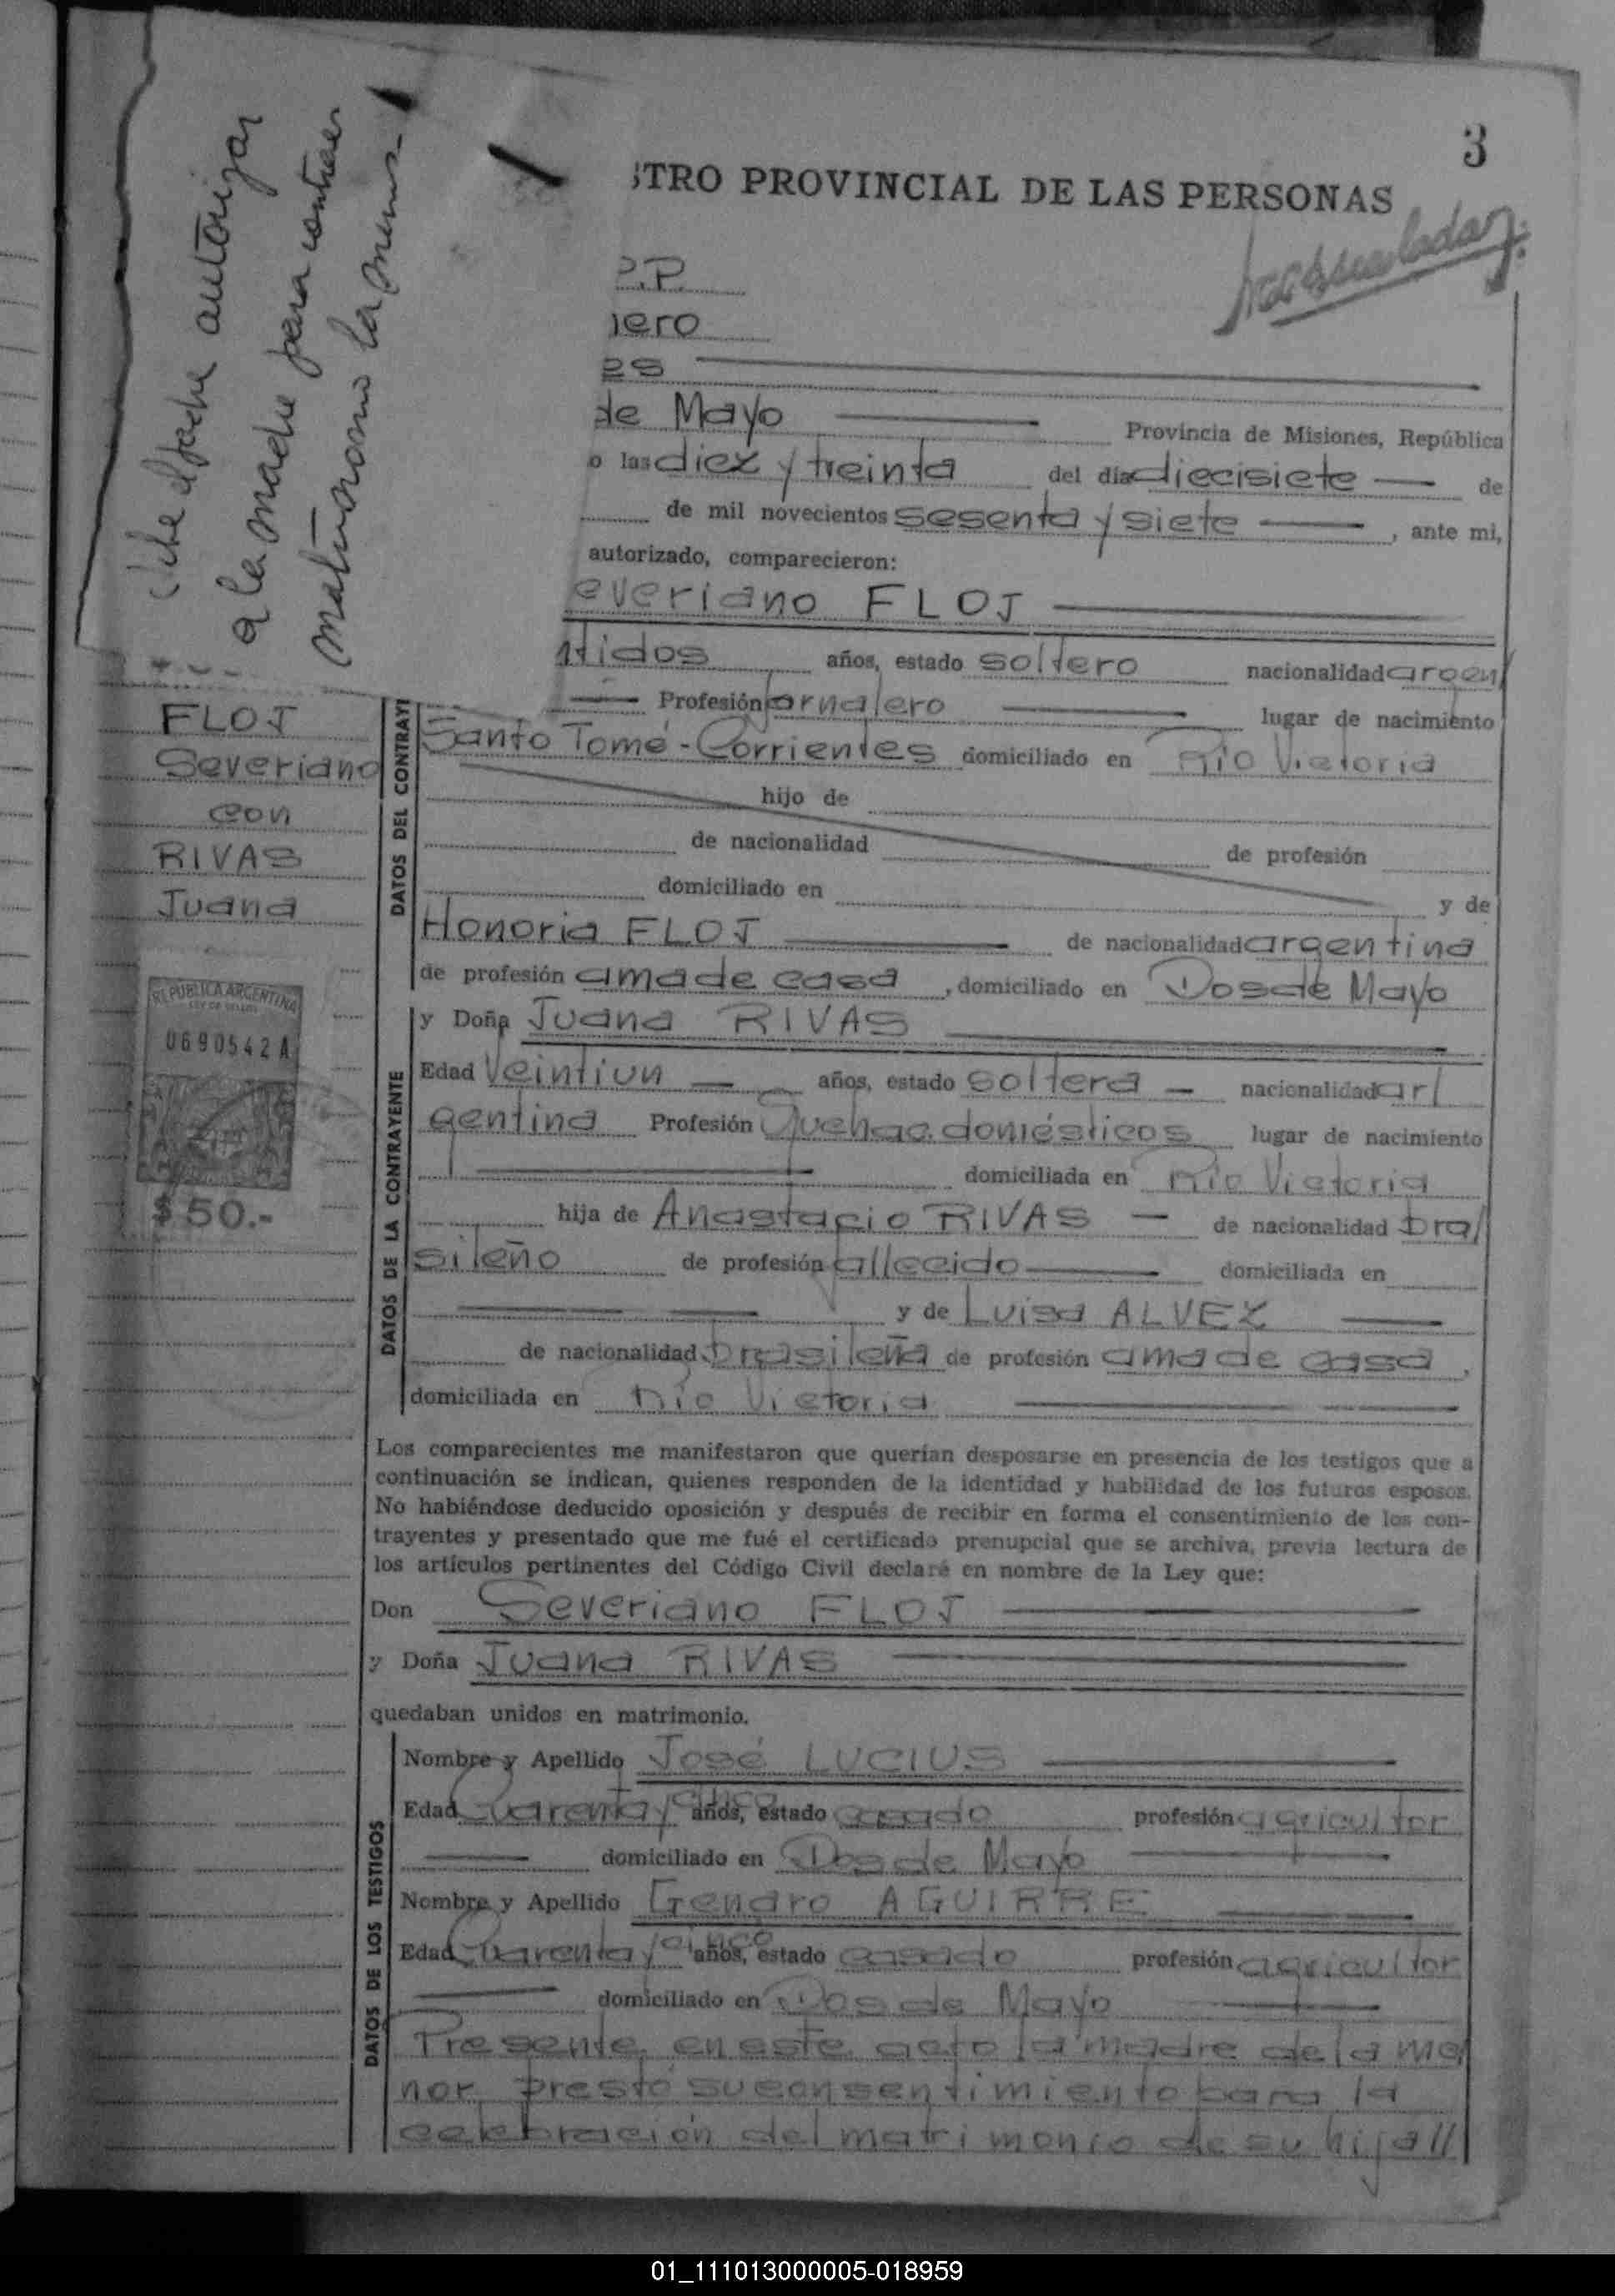 3
STRO PROVINCIAL DE LAS PERSONAS
debe el padre autorizar
a la madre para contraer
matrimonio la menor
P.P.
nero
es
de Mayo Provincia de Misiones, República
o las diez y treinta del día diecisiete de
de mil novecientos sesenta y siete, ante mi,
autorizado, comparecieron:
everiano FLOJ
ntidos años, estado soltero nacionalidad argen/
Profesión jornalero lugar de nacimiento
FLOJ
Severiano
con
RIVAS
Juana
REPUBLICA ARGENTINA
0690542 A
$50.-
DATOS DEL CONTRAYE
Santo Tomé - Corrientes domiciliado en Río Victoria
hijo de
de nacionalidad de profesión
domiciliado en y de
Honoria FLOJ de nacionalidad argentina
de profesión ama de casa, domiciliado en Dos de Mayo
DATOS DE LA CONTRAYENTE
y Doña Juana RIVAS
Edad Veintiun años, estado soltera nacionalidad ar/
gentina Profesión Quehac. domésticos lugar de nacimiento
domiciliada en Río Victoria
hija de Anastacio RIVAS de nacionalidad bra/
sileño de profesión fallecido domiciliada en
y de Luisa ALVEZ
de nacionalidad brasileña de profesión ama de casa,
domiciliada en Río Victoria
Los comparecientes me manifestaron que querían desposarse en presencia de los testigos que a
continuación se indican, quienes responden de la identidad y habilidad de los futuros esposos.
No habiéndose deducido oposición y después de recibir en forma el consentimiento de los con-
trayentes y presentado que me fué el certificado prenupcial que se archiva, previa lectura de
los artículos pertinentes del Código Civil declaré en nombre de la Ley que:
Don Severiano FLOJ
y Doña Juana RIVAS
quedaban unidos en matrimonio.
DATOS DE LOS TESTIGOS
Nombre y Apellido José LUCIUS
Edad Cuarenta y cinco años, estado casado profesión agricultor
domiciliado en Dos de Mayo
Nombre y Apellido Genaro AGUIRRE
Edad Cuarenta y cinco años, estado casado profesión agricultor
domiciliado en Dos de Mayo
Presente en este acto la madre de la me/
nor prestó su consentimiento para la
celebración del matrimonio de su hija//
01_111013000005-018959